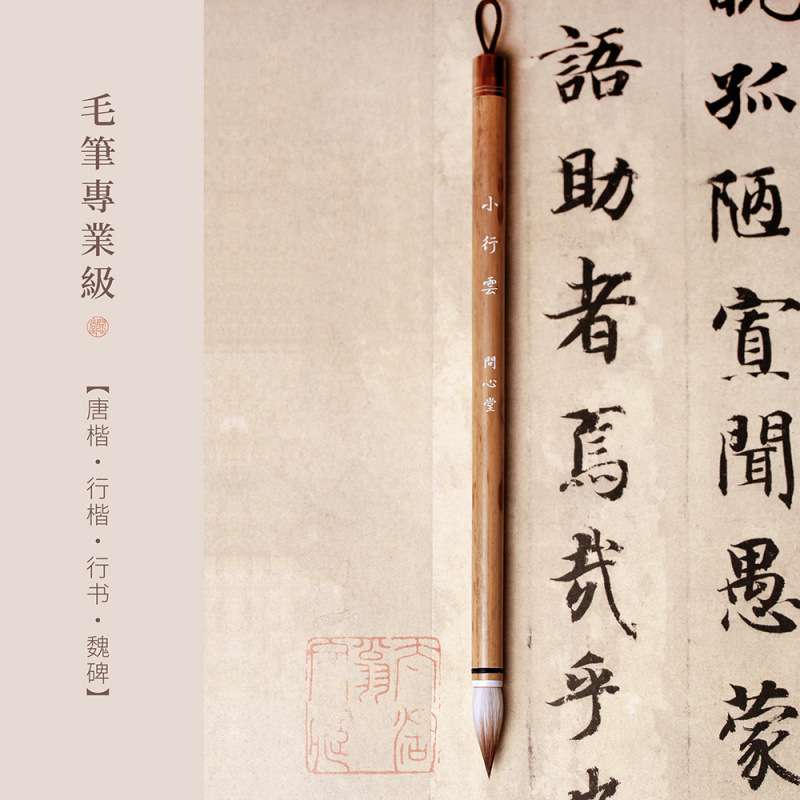 毛筆專業級
【唐楷·行楷·行书·魏碑】
小行雲 問心堂
眺孤陋寡聞愚蒙
語助者焉哉乎也